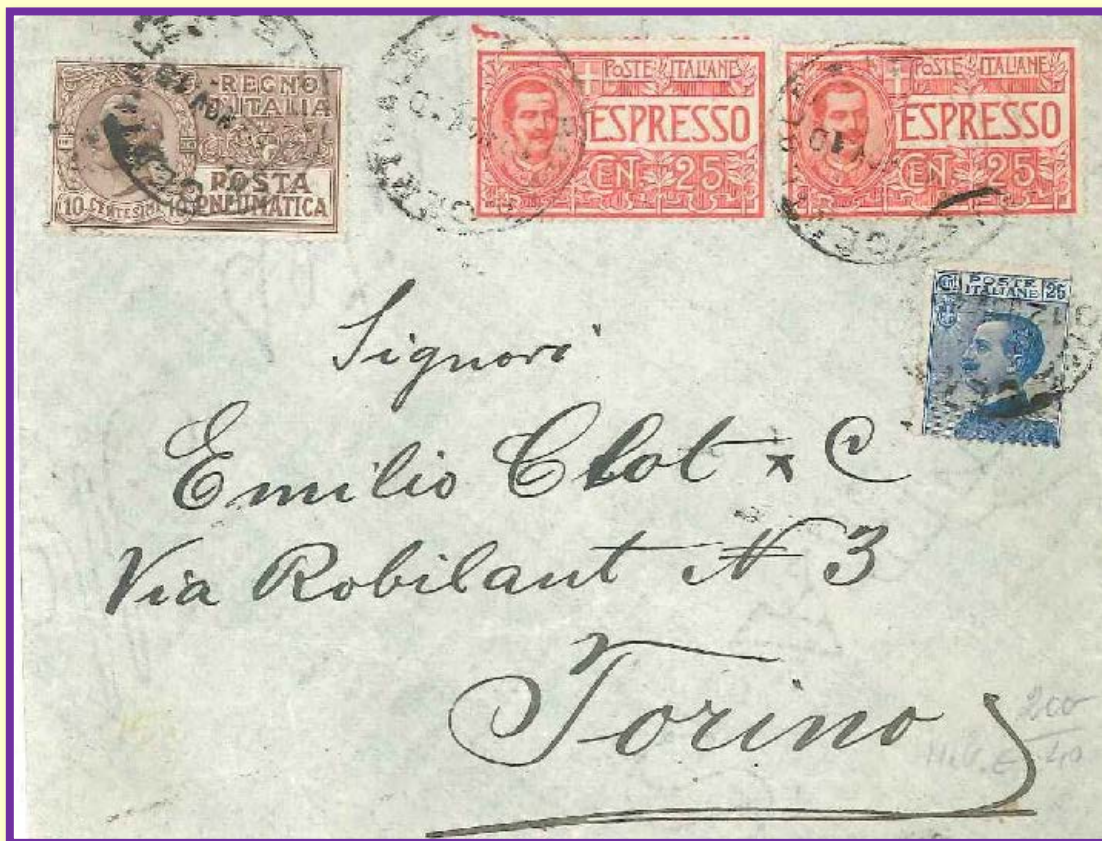 REGNO
D'ITALIA
POSTA
PNEUMATICA
10 CENTESIMI 10
POSTE ITALIANE
ESPRESSO
CEN. 25
POSTE ITALIANE
ESPRESSO
CEN. 25
POSTE
ITALIANE
25
Signori
Emilio Clot & C
Via Robilant N 3
Torino
200